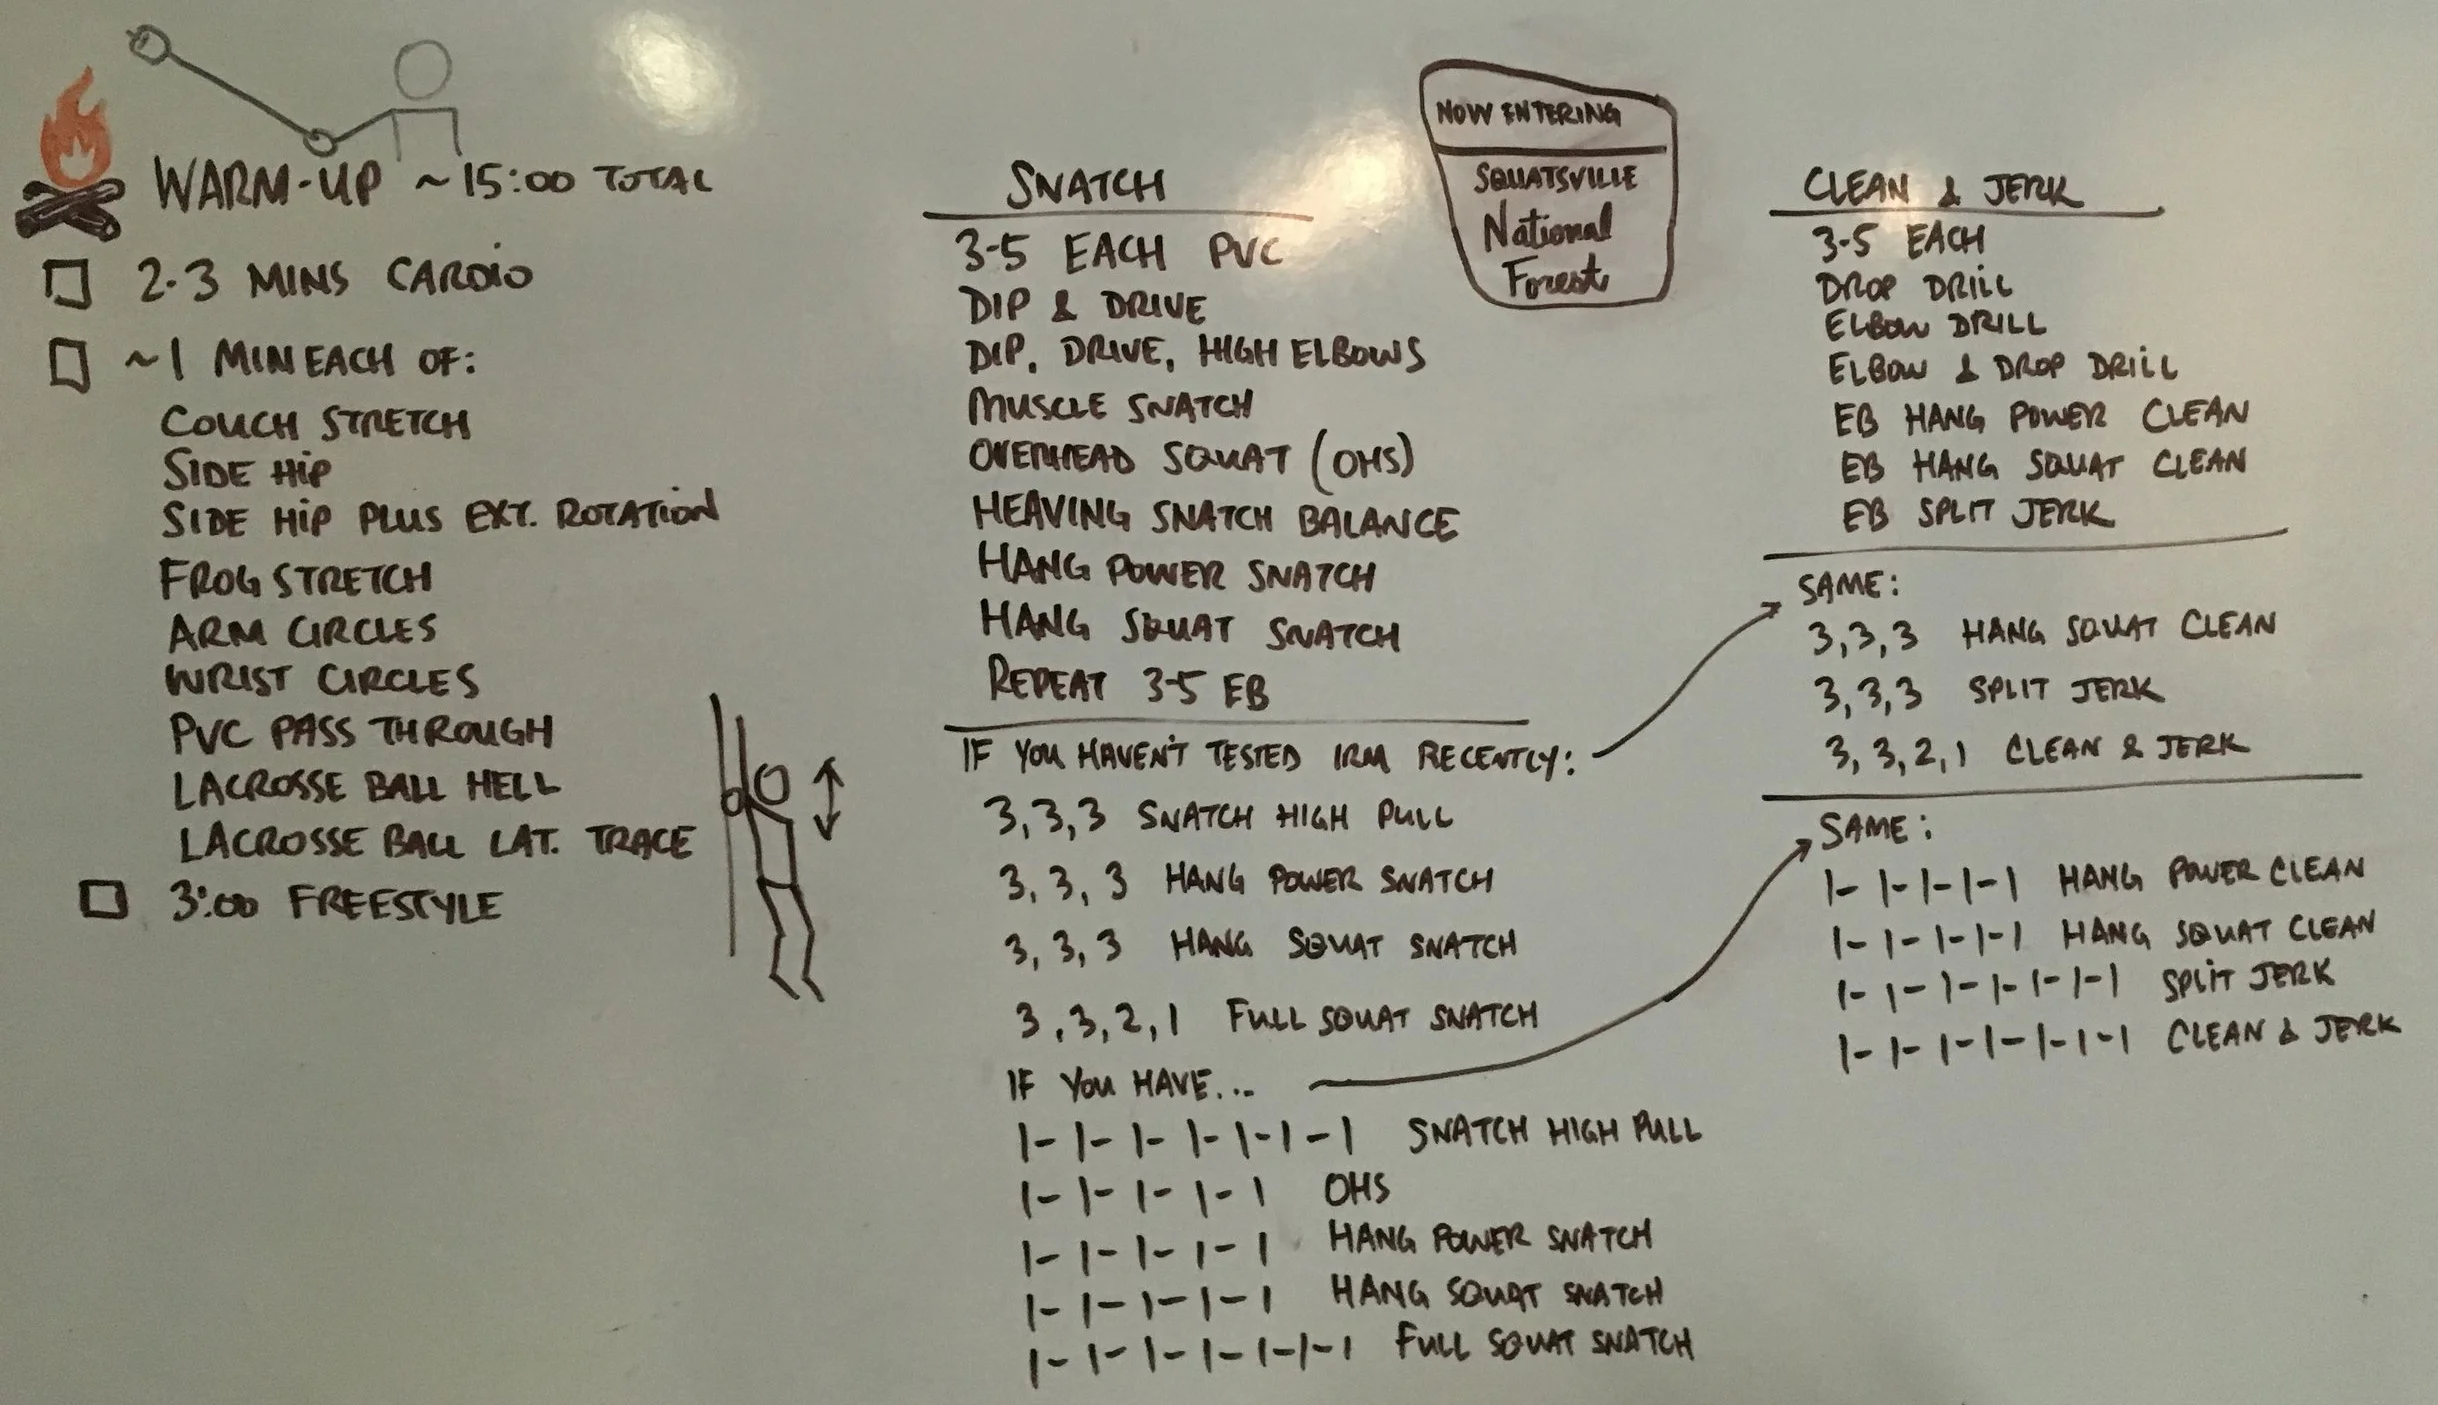 WARM-UP ~15:00 TOTAL
2-3 MINS CARDIO
~1 MIN EACH OF:
COUCH STRETCH
SIDE HIP
SIDE HIP PLUS EXT. ROTATION
FROG STRETCH
ARM CIRCLES
WRIST CIRCLES
PVC PASS THROUGH
LACROSSE BALL HELL
LACROSSE BALL LAT. TRACE
3:00 FREESTYLE
SNATCH
3-5 EACH PVC
DIP & DRIVE
DIP, DRIVE, HIGH ELBOWS
MUSCLE SNATCH
OVERHEAD SQUAT (OHS)
HEAVING SNATCH BALANCE
HANG POWER SNATCH
HANG SQUAT SNATCH
REPEAT 3-5 EB
IF YOU HAVEN'T TESTED 1RM RECENTLY:
3,3,3 SNATCH HIGH PULL
3, 3, 3 HANG POWER SNATCH
3, 3, 3 HANG SQUAT SNATCH
3,3,2,1 FULL SQUAT SNATCH
IF YOU HAVE...
1-1-1-1-1-1-1 SNATCH HIGH PULL
1-1-1-1-1 OHS
1-1-1-1-1 HANG POWER SNATCH
1-1-1-1-1 HANG SQUAT SNATCH
1-1-1-1-1-1-1 FULL SQUAT SNATCH
NOW ENTERING
SQUATSVILLE
National
Forest
CLEAN & JERK
3-5 EACH
DROP DRILL
ELBOW DRILL
ELBOW & DROP DRILL
EB HANG POWER CLEAN
EB HANG SQUAT CLEAN
EB SPLIT JERK
SAME:
3,3,3 HANG SQUAT CLEAN
3,3,3 SPLIT JERK
3,3,2,1 CLEAN & JERK
SAME:
1-1-1-1-1 HANG POWER CLEAN
1-1-1-1-1 HANG SQUAT CLEAN
1-1-1-1-1-1-1 SPLIT JERK
1-1-1-1-1-1-1 CLEAN & JERK